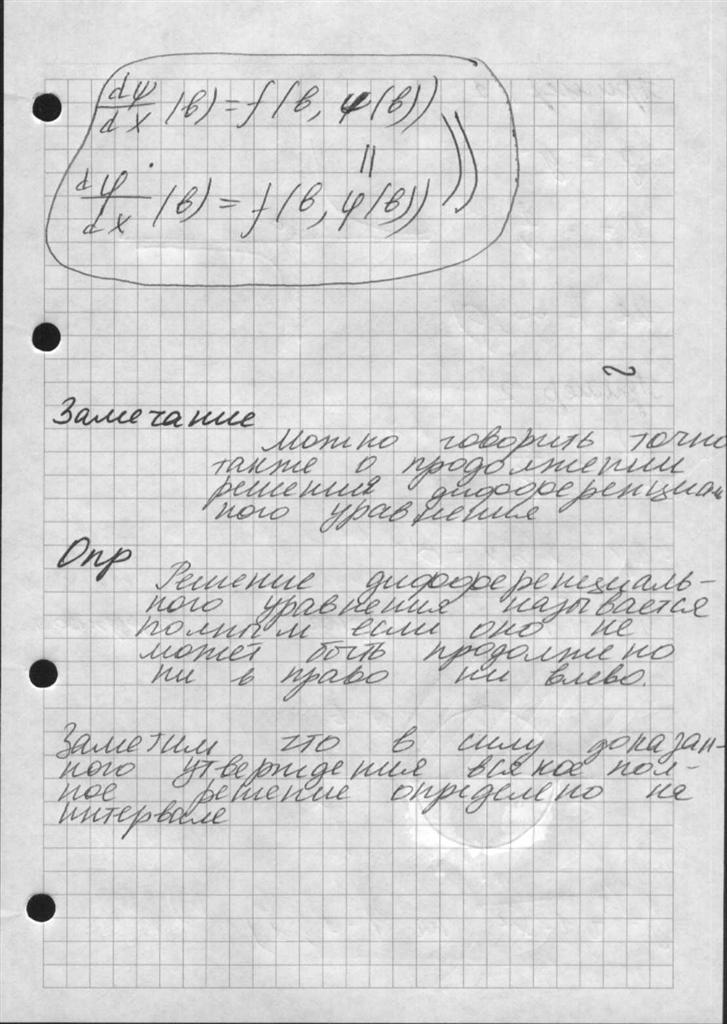 dψ/dx (b) = f(b, ψ(b))
||
dφ/dx (b) = f(b, φ(b))
Замечание
Можно говорить точно
также о продолжении
решения дифференциаль
ного уравнения
Опр
Решение дифференциаль-
ного уравнения называется
полным если оно не
может быть продолжено
ни в право ни влево.
Заметим что в силу доказан-
ного утверждения всякое пол-
ное решение определено на
интервале